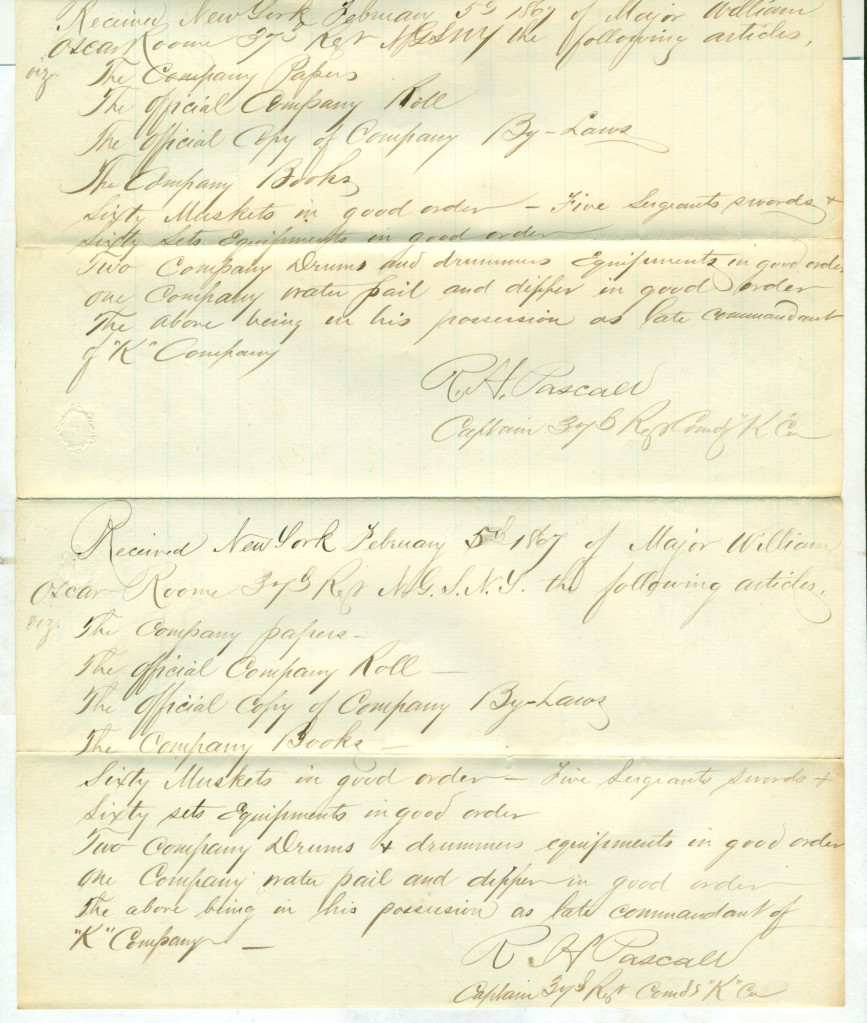 Received New York February 5th 1867 of Major William
Oscar Roome 37th Regt NGSNY the following articles,
viz.
The Company Papers
The Official Company Roll
The Official Copy of Company By-Laws
The Company Books
Sixty Muskets in good order - Five Sergeants swords +
Sixty Sets Equipments in good order
Two Company Drums and drummers Equipments in good order
one Company water pail and dipper in good order
The above being in his possession as late commandant
of "K" Company
R. H. Pascall
Captain 37th Regt Comdg "K" Co
Received New York February 5th 1867 of Major William
Oscar Roome 37th Regt N.G.S.N.Y. the following articles,
viz.
The Company papers -
The official Company Roll -
The Official Copy of Company By-Laws
The Company Books -
Sixty Muskets in good order - Five Sergeants swords +
Sixty sets Equipments in good order
Two Company Drums + drummers equipments in good order
one Company water pail and dipper in good order
The above being in his possession as late commandant of
"K" Company -
R H Pascall
Captain 37th Regt Comdg "K" Co